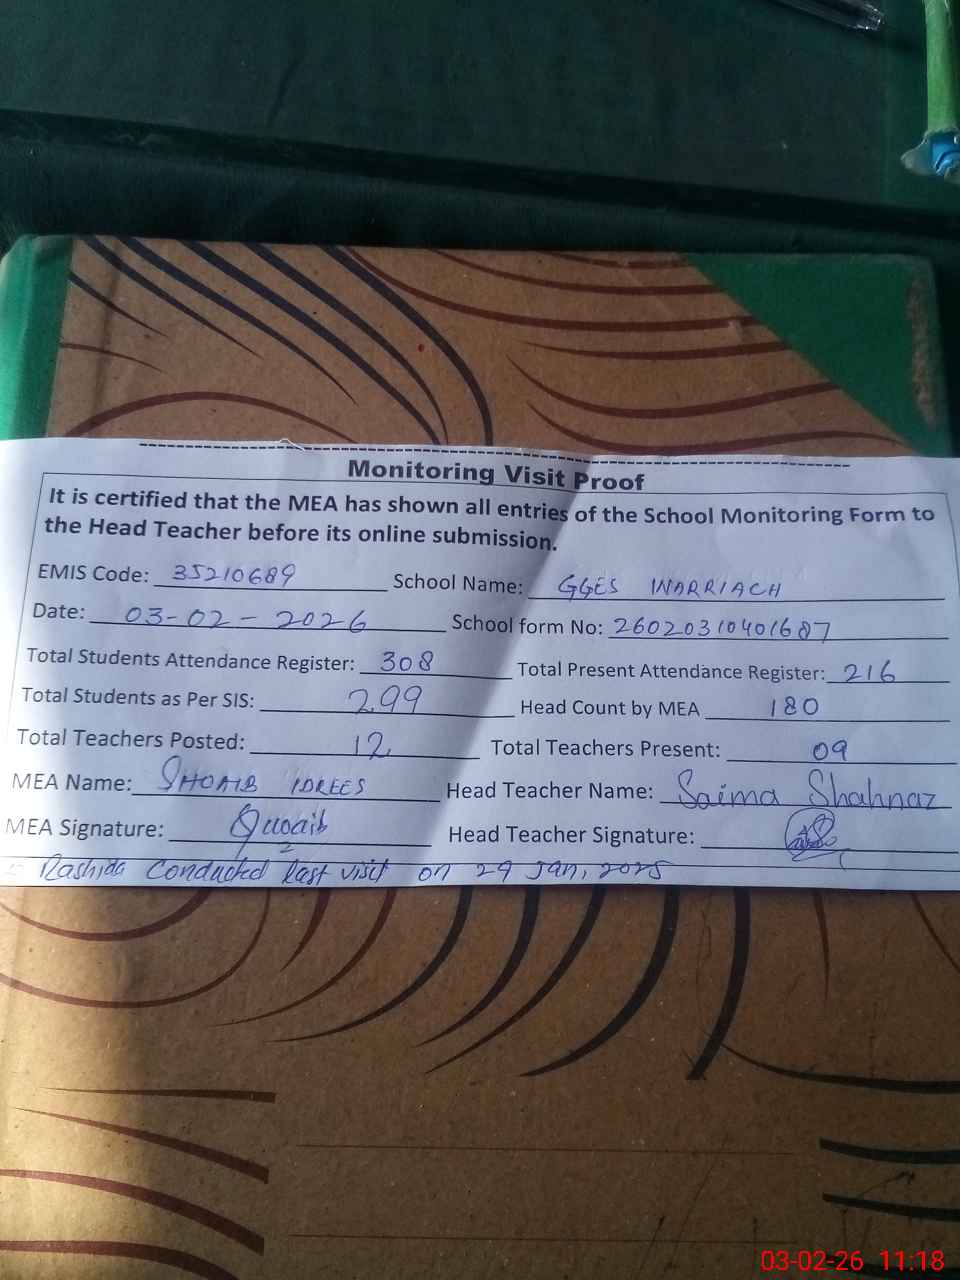 Monitoring Visit Proof
It is certified that the MEA has shown all entries of the School Monitoring Form to
the Head Teacher before its online submission.
EMIS Code: 35210689 School Name: GGES WARRIACH
Date: 03-02-2026 School form No: 26020310401687
Total Students Attendance Register: 308 Total Present Attendance Register: 216
Total Students as Per SIS: 299 Head Count by MEA 180
Total Teachers Posted: 12 Total Teachers Present: 09
MEA Name: SHOAIB IDREES Head Teacher Name: Saima Shahnaz
MEA Signature: Shoaib Head Teacher Signature:
Rashida Conducted last visit on 29 Jan, 2025
03-02-26 11:18